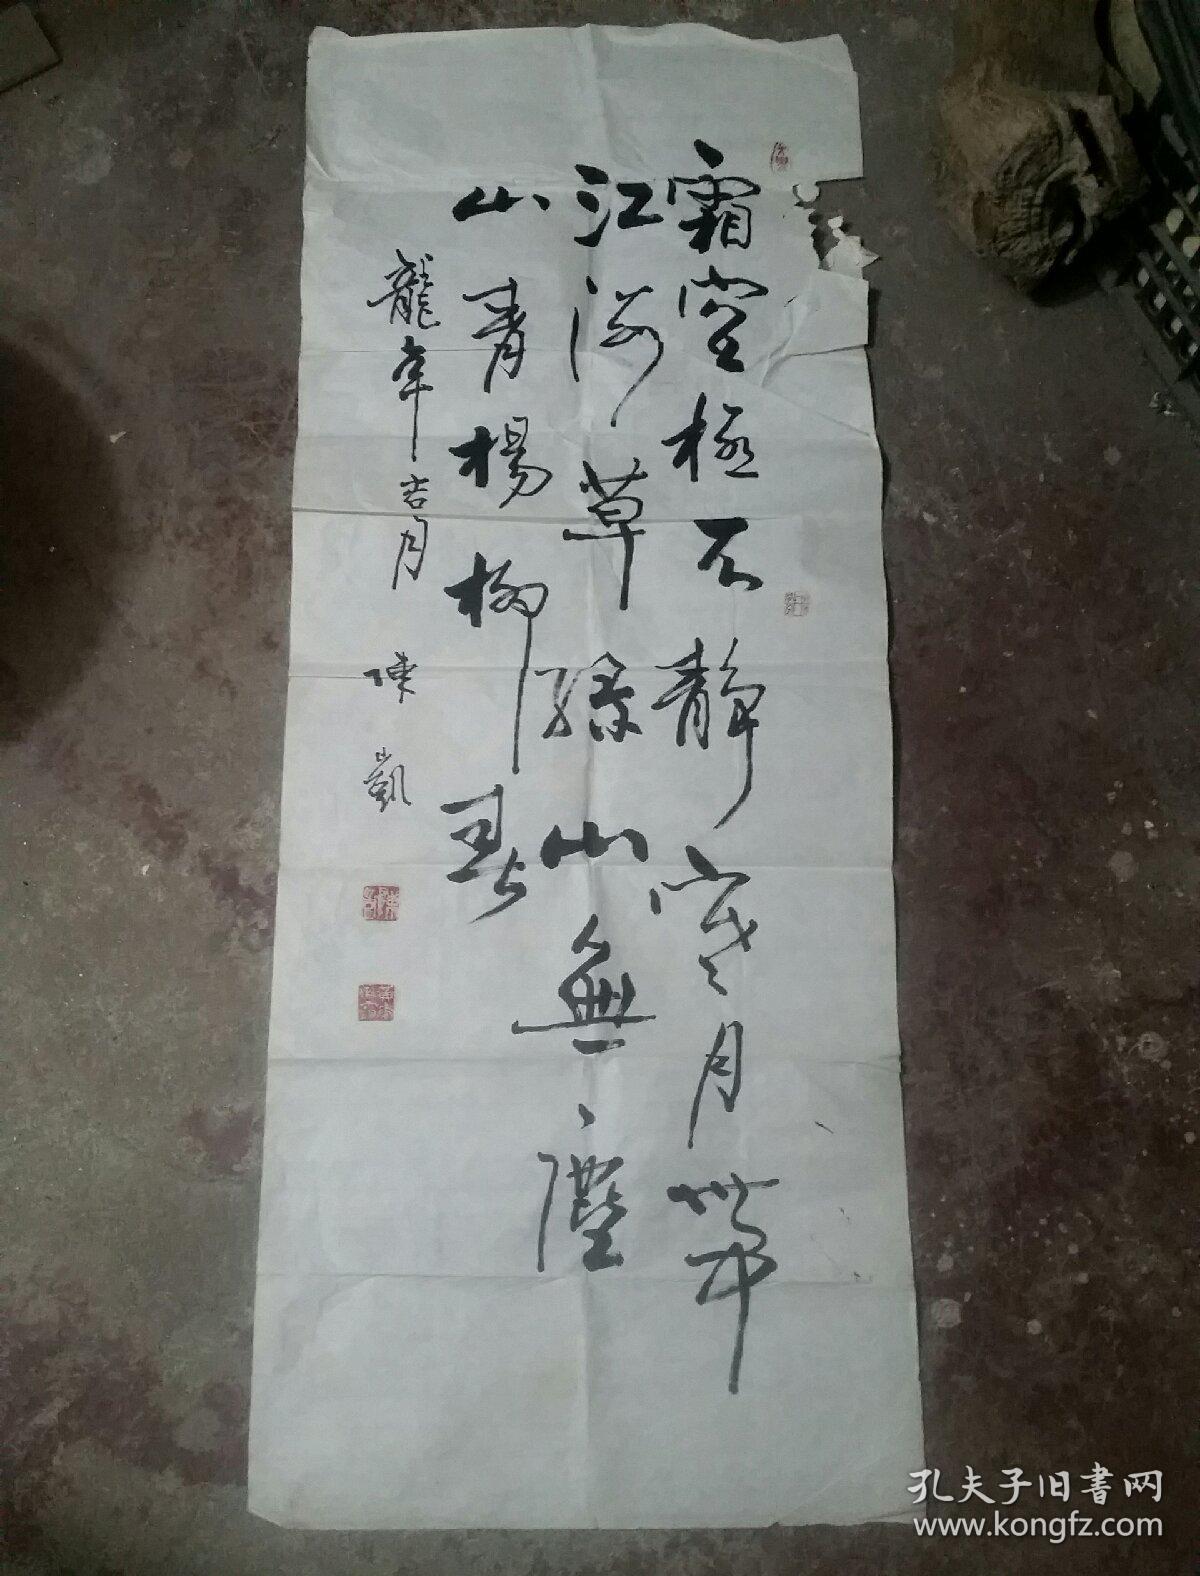 霜空極天静寒月帶
江流草緑山無塵
山青楊柳春
龍年吉月 陳凱
孔夫子旧书网
www.kongfz.com